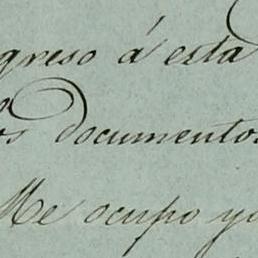 greso á esta
os documentos
Me ocupo ya